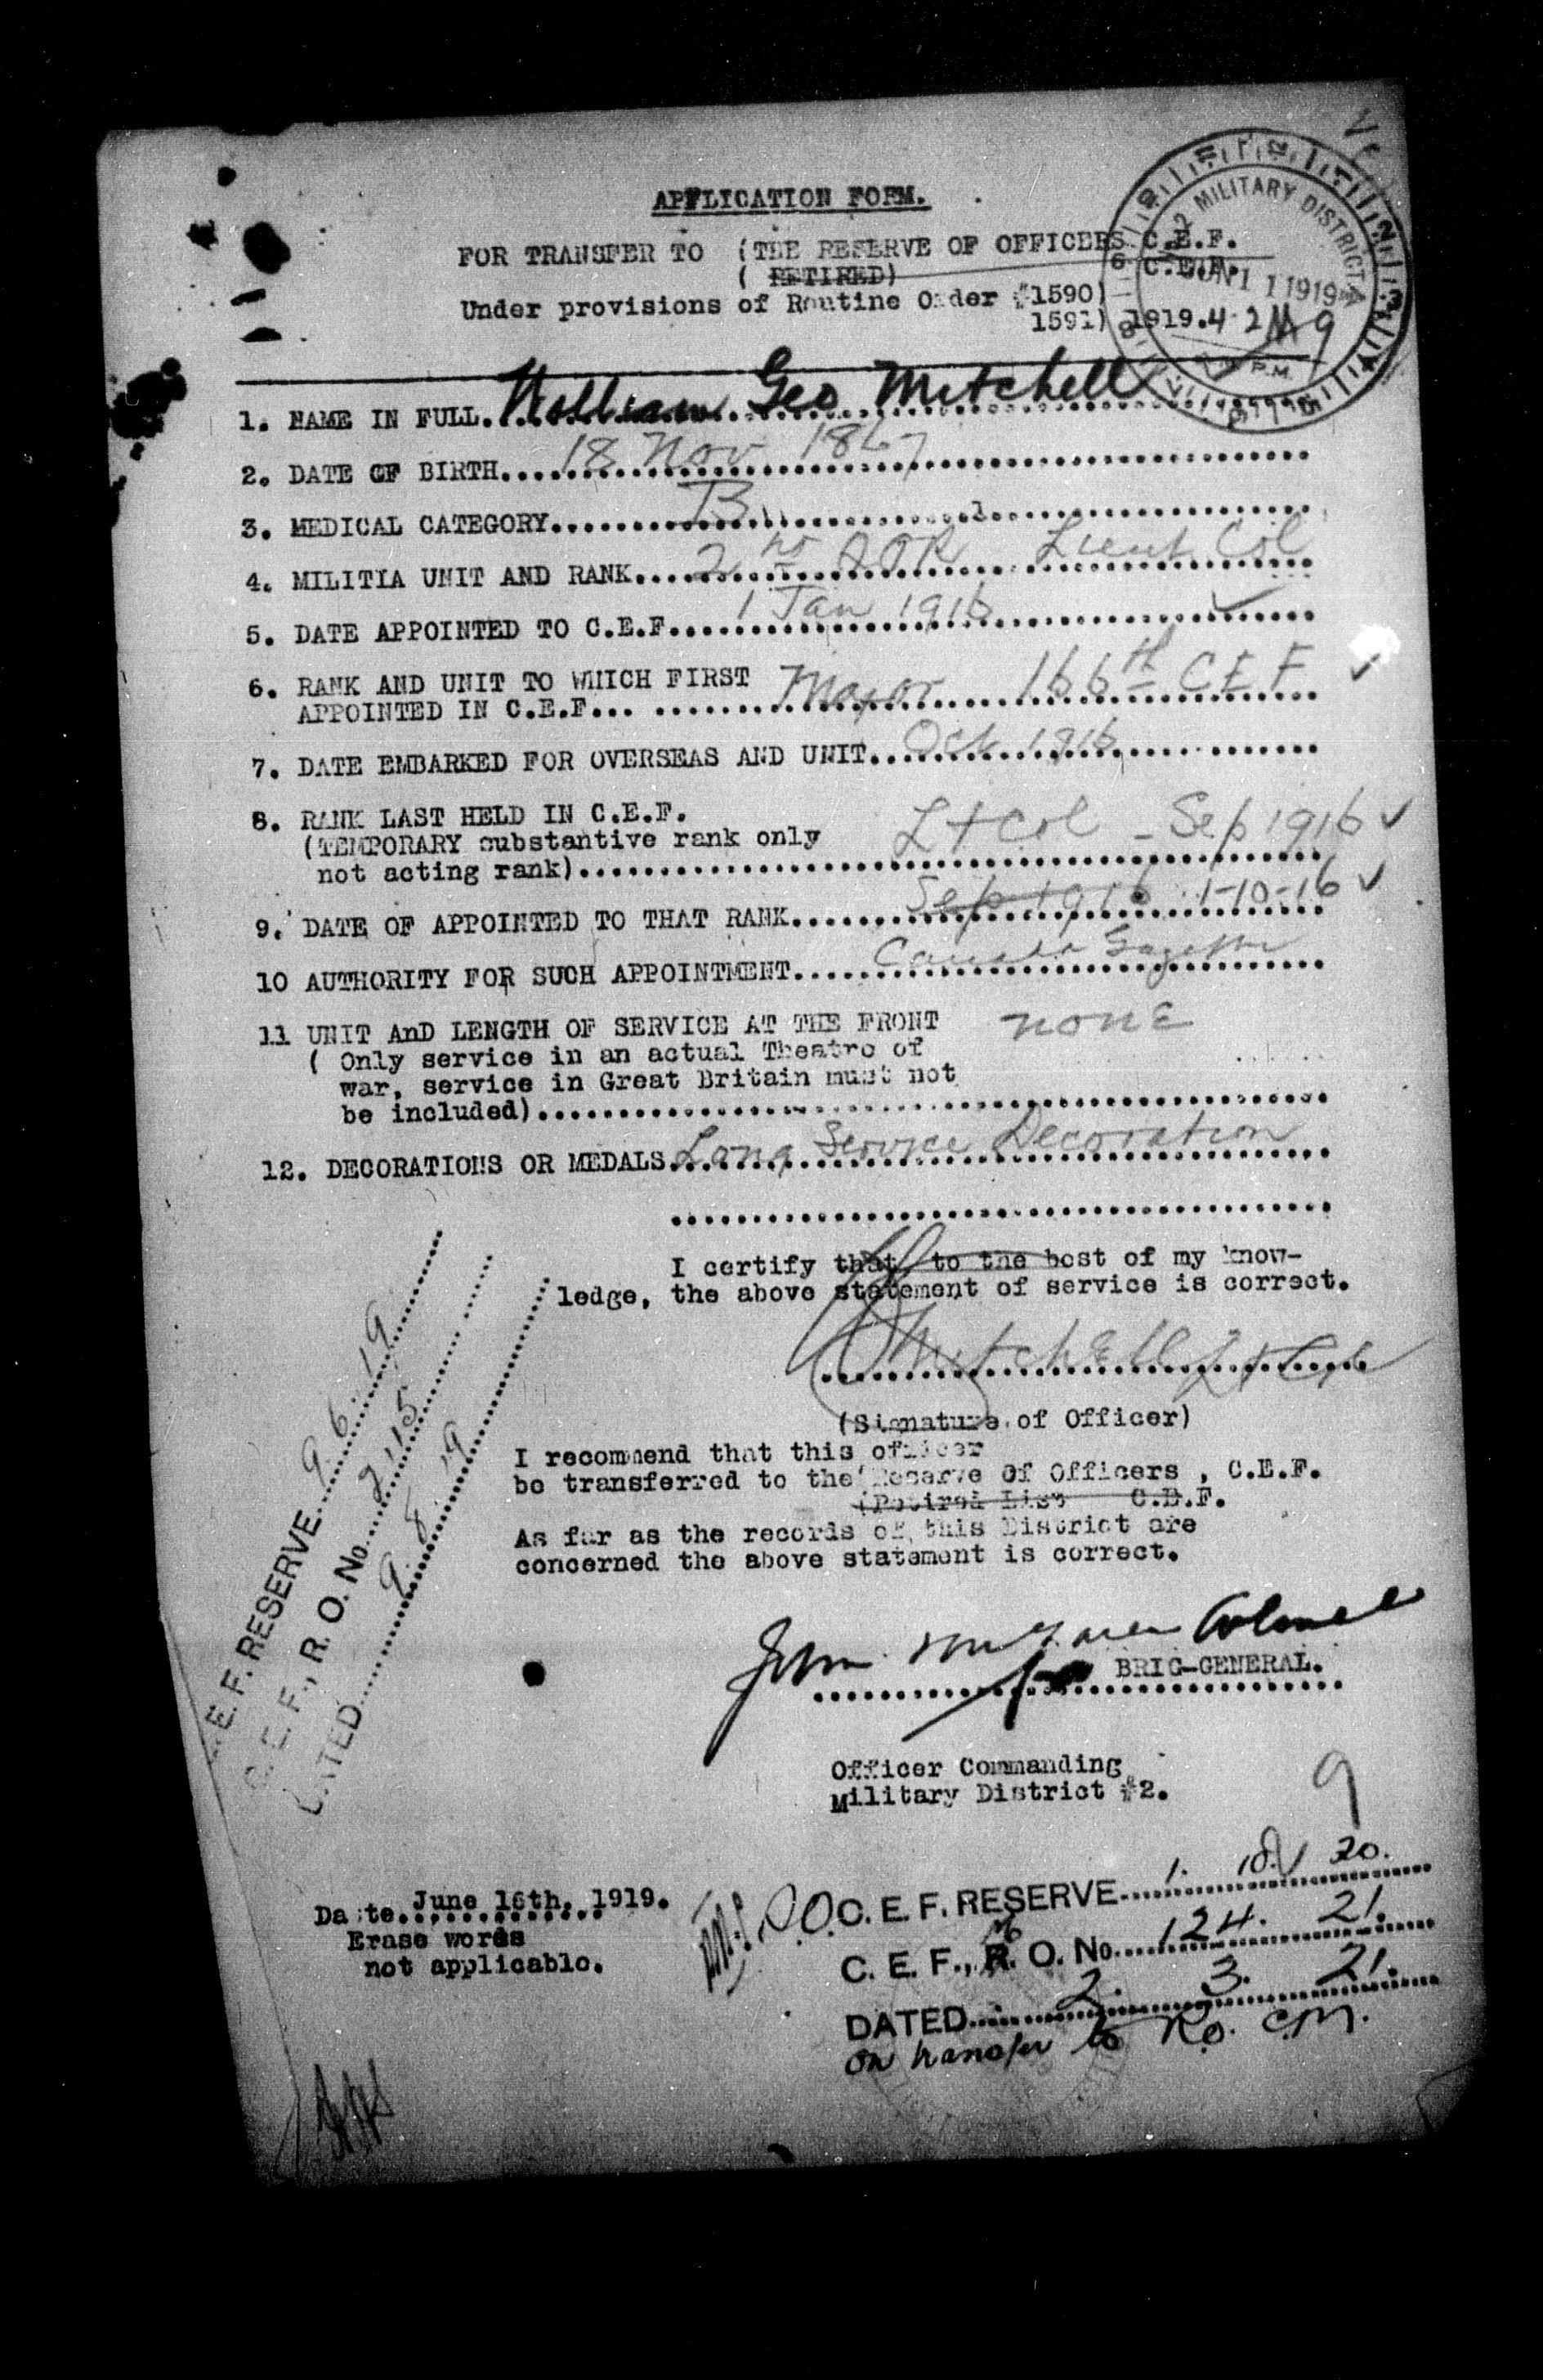 APPLICATION FORM.
FOR TRANSFER TO (THE RESERVE OF OFFICERS C.E.F.
( RETIRED) C.E.F.
Under provisions of Routine Order #1590)
1591) 1919.
MILITARY DISTRICT
JUN 11 1919
P.M.
1. NAME IN FULL. William Geo Mitchell
2. DATE OF BIRTH. 18 Nov 1867
3. MEDICAL CATEGORY. B
4. MILITIA UNIT AND RANK. 2nd QOR Lieut Col
5. DATE APPOINTED TO C.E.F. 1 Jan 1916
6. RANK AND UNIT TO WHICH FIRST
APPOINTED IN C.E.F... Major 166th C E F
7. DATE EMBARKED FOR OVERSEAS AND UNIT. Oct 1916
8. RANK LAST HELD IN C.E.F.
(TEMPORARY substantive rank only
not acting rank) Lt Col - Sep 1916
9. DATE OF APPOINTED TO THAT RANK. Sep 1916 1-10-16
10 AUTHORITY FOR SUCH APPOINTMENT. Canada Gazette
11 UNIT AnD LENGTH OF SERVICE AT THE FRONT none
( Only service in an actual Theatre of
war, service in Great Britain must not
be included)
12. DECORATIONS OR MEDALS. Long Service Decoration
I certify that, to the best of my know-
ledge, the above statement of service is correct.
Mitchell Lt Col
(Signature of Officer)
I recommend that this officer
be transferred to the (Reserve Of Officers , C.E.F.
(Retired List C.E.F.
As far as the records of this District are
concerned the above statement is correct.
E. F. RESERVE 9. 6. 19
C. E. F., R. O. No. 2115
DATED 9. 8. 19
John Colonel
for BRIG-GENERAL.
Officer Commanding
Military District #2.
9
Date June 16th, 1919.
Erase words
not applicable.
C. E. F. RESERVE 1. 10. 20.
C. E. F., R. O. No. 124. 21.
DATED 2. 3. 21.
on transfer to R.O. C.M.